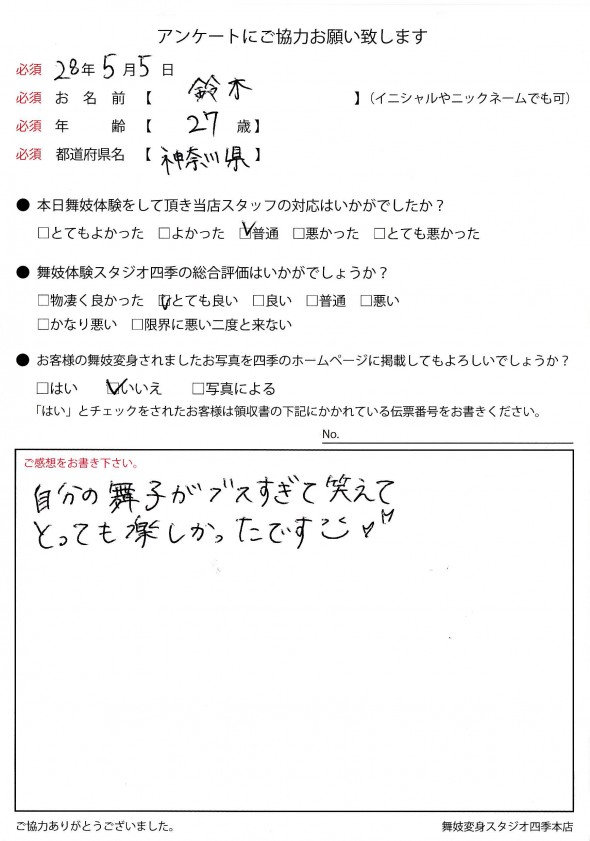 アンケートにご協力お願い致します
必須 28年 5月 5日
必須 お名前 【 鈴木 】（イニシャルやニックネームでも可）
必須 年齢 【 27 歳】
必須 都道府県名 【 神奈川県 】
● 本日舞妓体験をして頂き当店スタッフの対応はいかがでしたか？
□とてもよかった □よかった ☑普通 □悪かった □とても悪かった
● 舞妓体験スタジオ四季の総合評価はいかがでしょうか？
□物凄く良かった ☑とても良い □良い □普通 □悪い
□かなり悪い □限界に悪い二度と来ない
● お客様の舞妓変身されましたお写真を四季のホームページに掲載してもよろしいでしょうか？
□はい ☑いいえ □写真による
「はい」とチェックをされたお客様は領収書の下記にかかれている伝票番号をお書きください。
No.
ご感想をお書き下さい。
自分の舞子がブスすぎて笑えて
とっても楽しかったです
ご協力ありがとうございました。 舞妓変身スタジオ四季本店